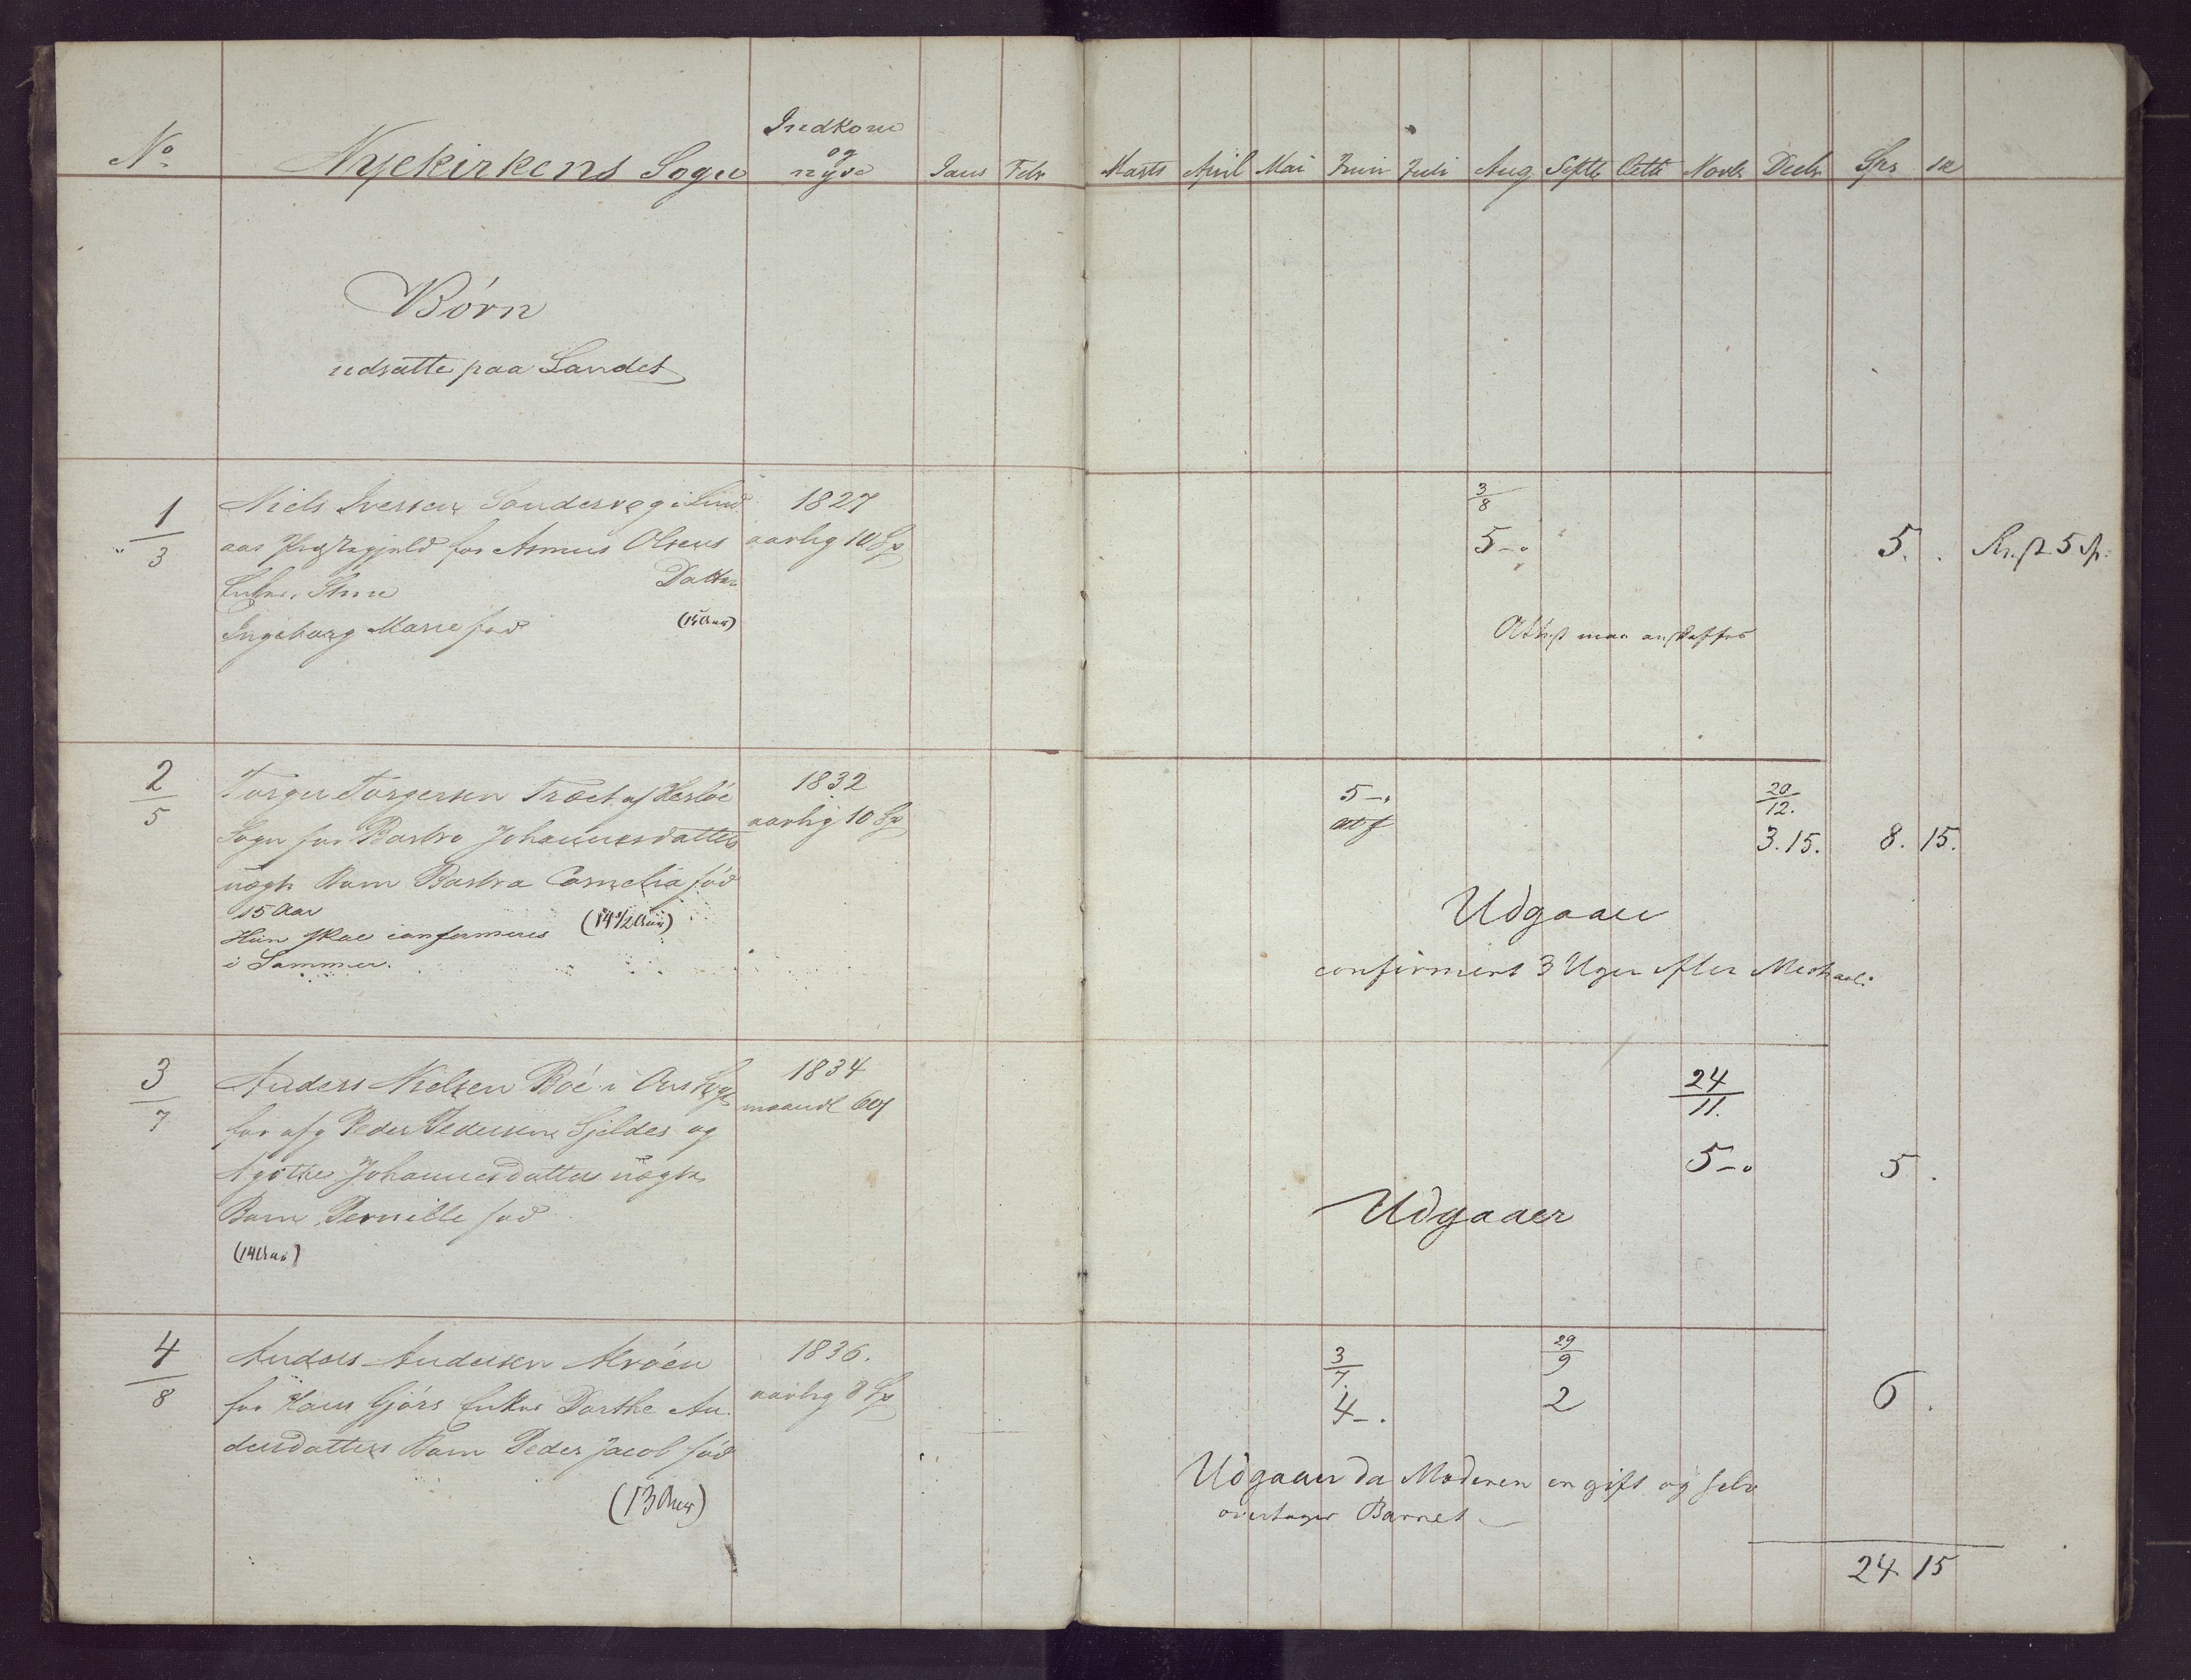 No Nyekirkens Sogn
Indkom
og
nyde
Janu Febr Marts April Mai Juni Juli Aug Septb Octb Novbr Decbr Sps
Børn
udsatte paa Landet
1
3
Niels Iversen Sondervog i Lind
aas Præstegjeld for Asmus Olsens
Enke Stine Datter
Ingeborg Marie fød
1827
aarlig 10 Sp
3
8
5 -
5.
Rest 5 Sp:
Attest maa anskaffes
2
5
Torger Torgersen Træet af Herløe
Sogn for Barbro Johannesdatters
uægte Barn Barbra Cornelia fød
15 Aar
(14 1/2 Aar)
Hun skal confirmeres
i Sommer.
1832
aarlig 10 Sp
5 -
20
12.
3.15.
8. 15.
Udgaaer
confirmert 3 Uger efter Michael:
3
7
Anders Nielsen Boé i Ous Sogn
for afg Peder Pedersen Gjeldes og
Agothe Johannesdatters uægte
Barn Pernille fød
(14 Aar)
1834
maanedl 60
24
11.
5 -
5.
Udgaaer
4
8
Anders Andersen
for Hans Gjørs Enke Dorthe An
dersdatters Barn Peder Jacob fød
(13 Aar)
1836.
aarlig 8 Sp
3
7.
4 - .
29
9
2
6.
Udgaaer da Moderen er gift og selv
overtager Barnet
24 15